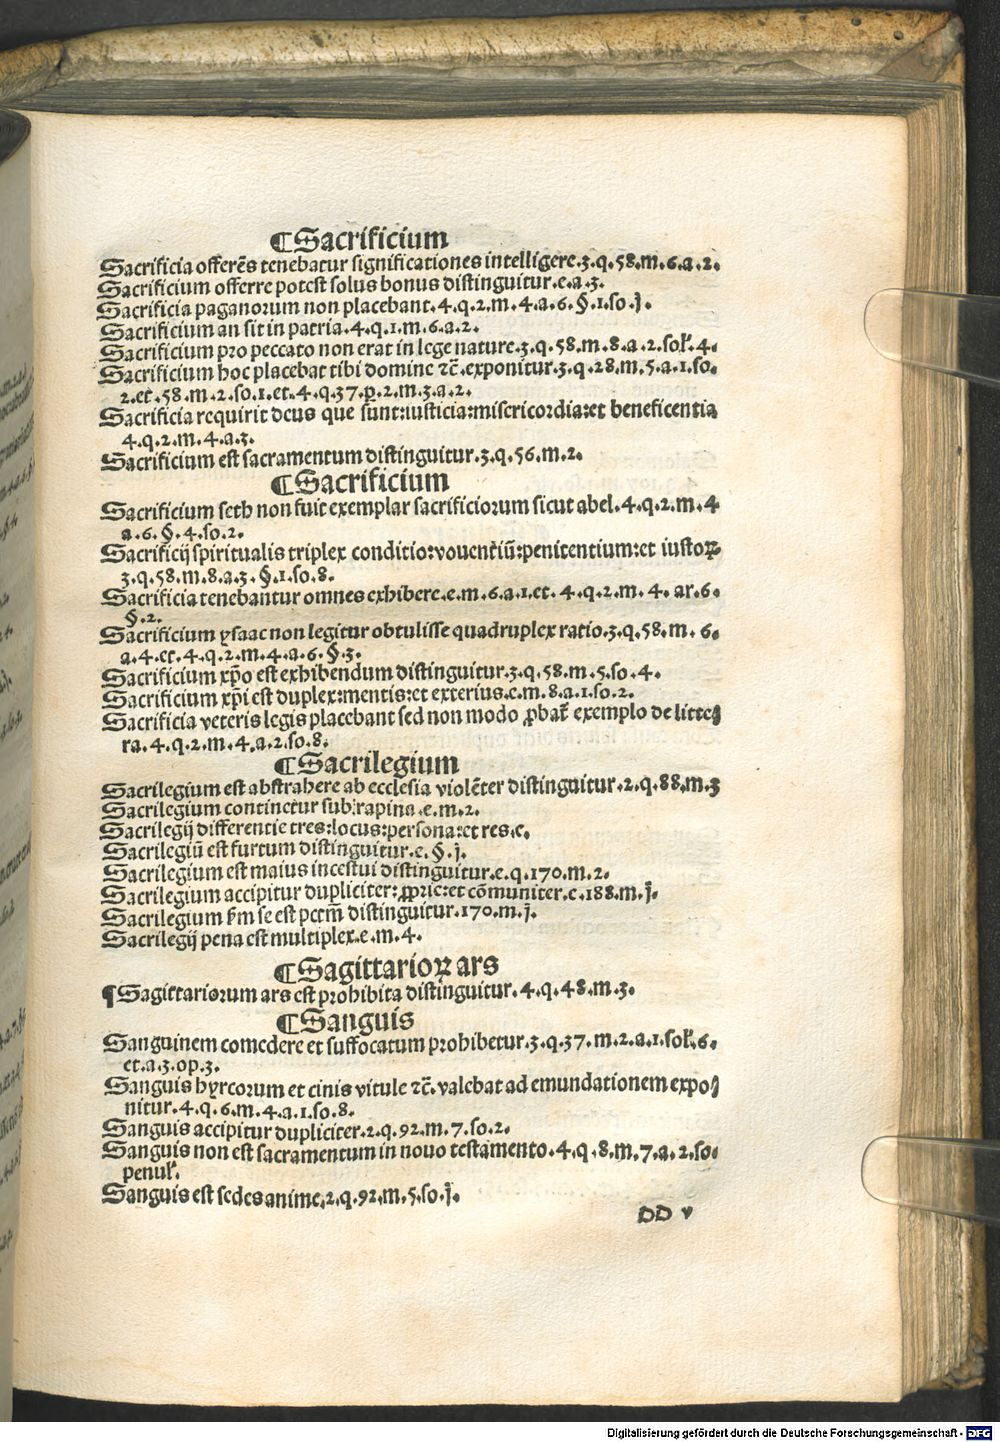 ¶Sacrificium
Sacrificia offerēs tenebatur significationes intelligere.3.q.58.m.6.a.2.
Sacrificium offerre potest solus bonus distinguitur.e.a.3.
Sacrificia paganorum non placebant.4.q.2.m.4.a.6.§.1.so.j.
Sacrificium an sit in patria.4.q.1.m.6.a.2.
Sacrificium pro peccato non erat in lege nature.3.q.58.m.8.a.2.sol.4.
Sacrificium hoc placebat tibi domine ⁊c̄.exponitur.3.q.28.m.5.a.1.so.
2.et.58.m.2.so.1.et.4.q.37.p̲.2.m.3.a.2.
Sacrificia requirit deus que sunt:iusticia:misericordia:et beneficentia
4.q.2.m.4.a.3.
Sacrificium est sacramentum distinguitur.3.q.56.m.2.
¶Sacrificium
Sacrificium seth non fuit exemplar sacrificiorum sicut abel.4.q.2.m.4
a.6.§.4.so.2.
Sacrificij spiritualis triplex conditio:vouentiū:penitentium:et iustoꝝ
3.q.58.m.8.a.3.§.1.so.8.
Sacrificia tenebantur omnes exhibere.e.m.6.a.1.et.4.q.2.m.4.ar.6.
§.2.
Sacrificium ysaac non legitur obtulisse quadruplex ratio.3.q.58.m.6.
a.4.et.4.q.2.m.4.a.6.§.3.
Sacrificium xp̄o est exhibendum distinguitur.3.q.58.m.5.so.4.
Sacrificium xp̄i est duplex:mentis:et exterius.e.m.8.a.1.so.2.
Sacrificia veteris legis placebant sed non modo ꝓbat̄ exemplo de litte⸗
ra.4.q.2.m.4.a.2.so.8.
¶Sacrilegium
Sacrilegium est abstrahere ab ecclesia violēter distinguitur.2.q.88.m.3
Sacrilegium continetur sub rapina.e.m.2.
Sacrilegij differentie tres:locus:persona:et res.e.
Sacrilegiū est furtum distinguitur.e.§.j.
Sacrilegium est maius incestui distinguitur.e.q.170.m.2.
Sacrilegium accipitur dupliciter:ꝓprie:et cōmuniter.e.188.m.j.
Sacrilegium ẜm se est pctm̄ distinguitur.170.m.j.
Sacrilegij pena est multiplex.e.m.4.
¶Sagittarioꝝ ars
¶Sagittariorum ars est prohibita distinguitur.4.q.48.m.3.
¶Sanguis
Sanguinem comedere et suffocatum prohibetur.3.q.37.m.2.a.1.sol.6.
et.a.3.op.3.
Sanguis hyrcorum et cinis vitule ⁊c̄.valebat ad emundationem expo⸗
nitur.4.q.6.m.4.a.1.so.8.
Sanguis accipitur dupliciter.2.q.92.m.7.so.2.
Sanguis non est sacramentum in nouo testamento.4.q.8.m.7.a.2.so.
penul.
Sanguis est sedes anime.2.q.92.m.5.so.j.
DD v
Digitalisierung gefördert durch die Deutsche Forschungsgemeinschaft - DFG